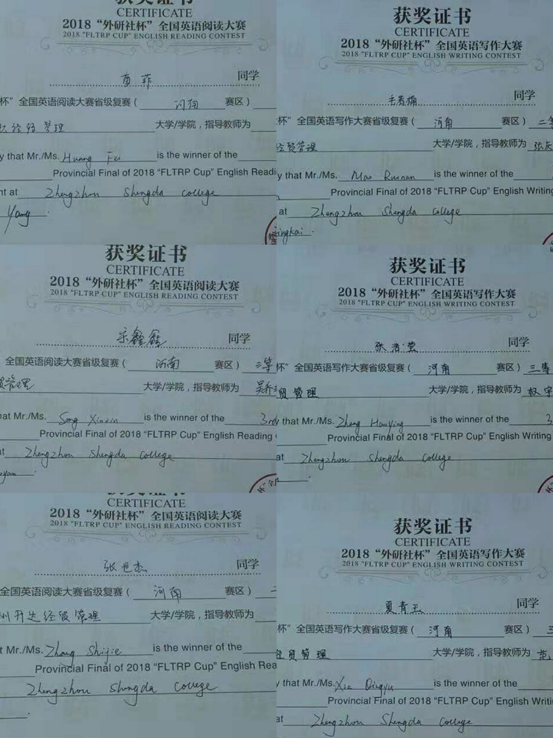 获奖证书
CERTIFICATE
2018 “外研社杯” 全国英语阅读大赛
2018 "FLTRP CUP" ENGLISH READING CONTEST
黄菲 同学
杯” 全国英语阅读大赛省级复赛( 河南 赛区)
经贸管理 大学/学院,指导教师为
y that Mr./Ms. Huang Fei is the winner of the
Provincial Final of 2018 "FLTRP Cup" English Readi
nt at Zhengzhou Shengda college
Yang
获奖证书
CERTIFICATE
2018 “外研社杯” 全国英语写作大赛
2018 "FLTRP CUP" ENGLISH WRITING CONTEST
同学
杯” 全国英语写作大赛省级复赛( 河南 赛区) 二等
经贸管理 大学/学院,指导教师为
y that Mr./Ms. Mao is the winner of the
Provincial Final of 2018 "FLTRP Cup" English Writing
at Zhengzhou Shengda college
获奖证书
CERTIFICATE
2018 “外研社杯” 全国英语阅读大赛
2018 "FLTRP CUP" ENGLISH READING CONTEST
宋鑫鑫 同学
全国英语阅读大赛省级复赛( 河南 赛区) 三等
贸管理 大学/学院,指导教师为
hat Mr./Ms. Song Xinxin is the winner of the 3rd
Provincial Final of 2018 "FLTRP Cup" English Reading
at Zhengzhou Shengda college
获奖证书
CERTIFICATE
2018 “外研社杯” 全国英语写作大赛
2018 "FLTRP CUP" ENGLISH WRITING CONTEST
张浩莹 同学
杯” 全国英语写作大赛省级复赛( 河南 赛区) 三等
贸管理 大学/学院,指导教师为
y that Mr./Ms. Zhang Haoying is the winner of the 3
Provincial Final of 2018 "FLTRP Cup" English Writing
at Zhengzhou Shengda college
CERTIFICATE
2018 “外研社杯” 全国英语阅读大赛
2018 "FLTRP CUP" ENGLISH READING CONTEST
张世杰 同学
全国英语阅读大赛省级复赛( 河南 赛区)
州升达经贸管理 大学/学院,指导教师为
t Mr./Ms. Zhang Shijie is the winner of the
Provincial Final of 2018 "FLTRP Cup" English Rea
Zhengzhou Shengda College
获奖证书
CERTIFICATE
2018 “外研社杯” 全国英语写作大赛
2018 "FLTRP CUP" ENGLISH WRITING CONTEST
夏青玉 同学
杯” 全国英语写作大赛省级复赛( 河南 赛区)
经贸管理 大学/学院,指导教师为
y that Mr./Ms. Xia Qingyu is the winner of the
Provincial Final of 2018 "FLTRP Cup" English Writi
at Zhengzhou Shengda College